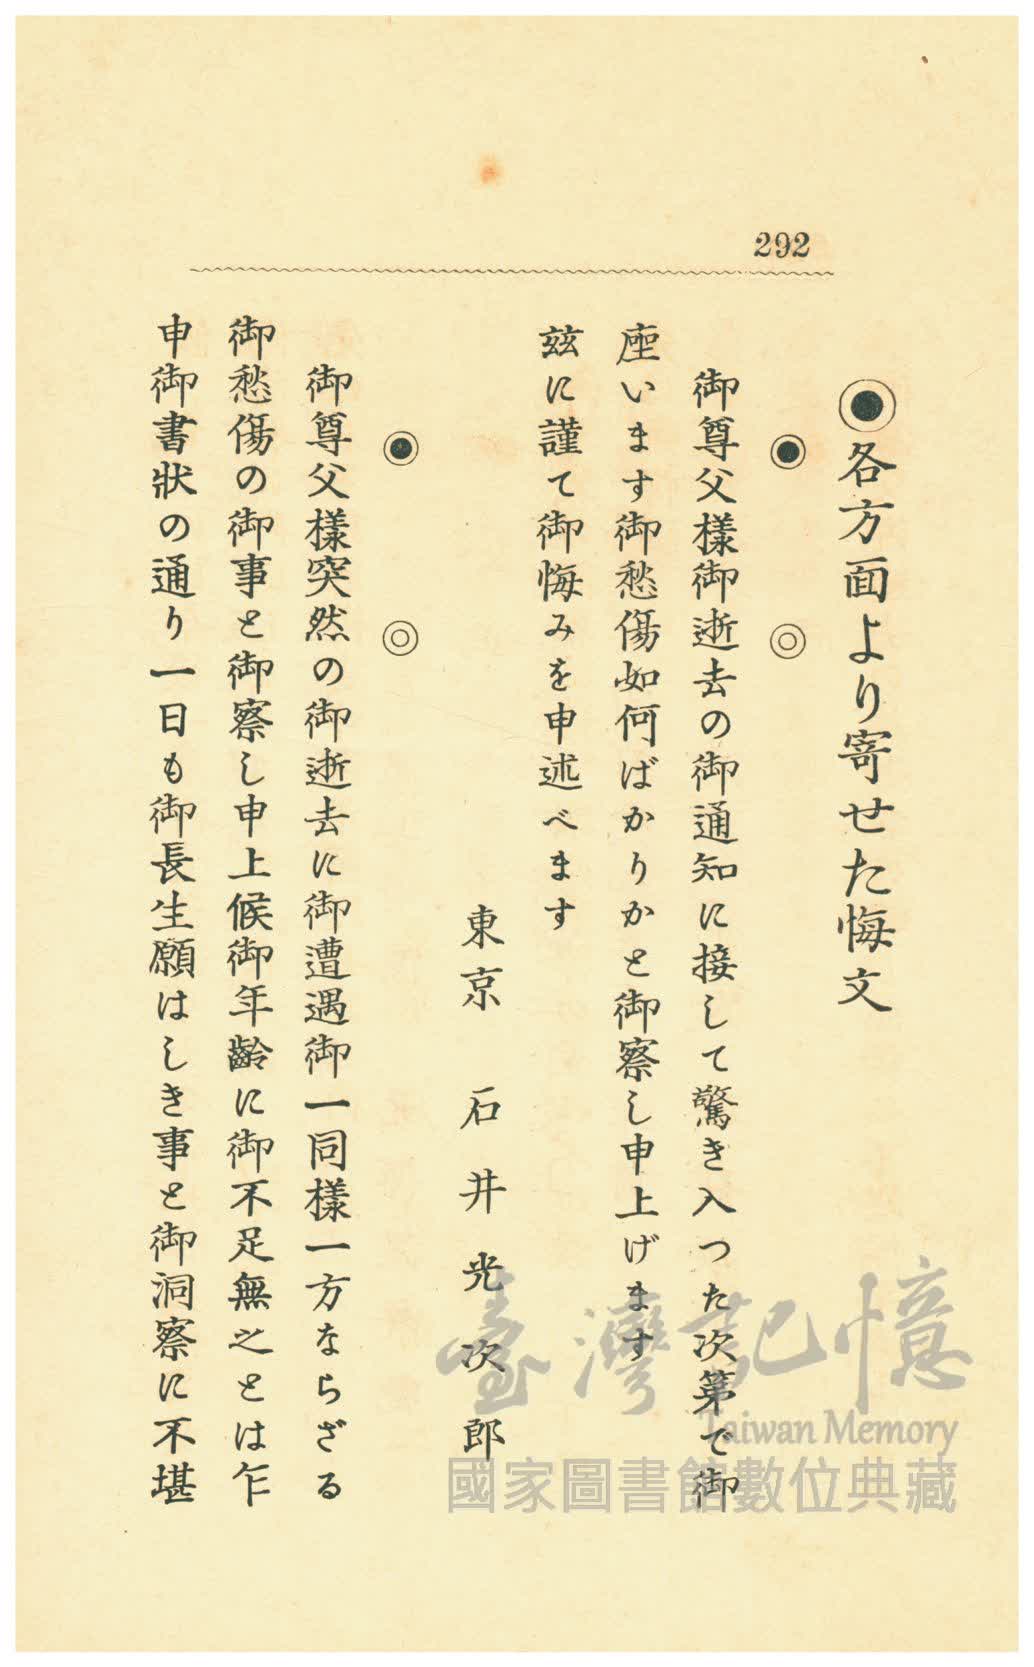 292
◉各方面より寄せた悔文
◉ ◎
御尊父樣御逝去の御通知に接して驚き入つた次第で御
座います御愁傷如何ばかりかと御察し申上げます
玆に謹て御悔みを申述べます
東京 石井光次郎
◉ ◎
御尊父樣突然の御逝去に御遭遇御一同樣一方ならざる
御愁傷の御事と御察し申上候御年齡に御不足無之とは乍
申御書狀の通り一日も御長生願はしき事と御洞察に不堪
臺灣記憶
Taiwan Memory
國家圖書館數位典藏